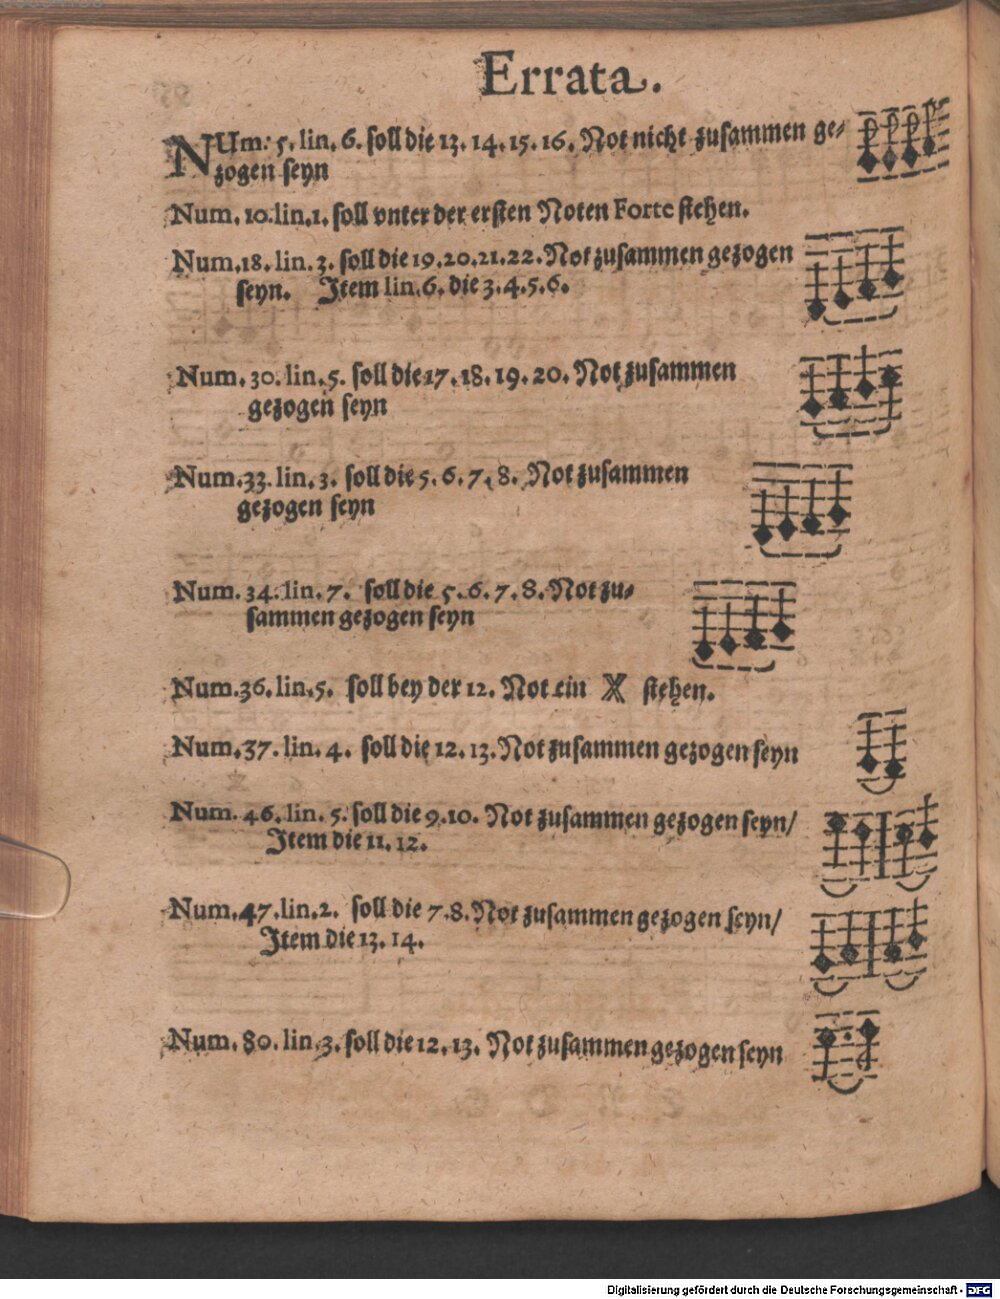 Errata.
NUm. 5. lin. 6. soll die 13. 14. 15. 16. Not nicht zusammen ge-
zogen seyn
Num. 10. lin. 1. soll vnter der ersten Noten Forte stehen.
Num. 18. lin. 3. soll die 19. 20. 21. 22. Not zusammen gezogen
seyn. Item lin. 6. die 3. 4. 5. 6.
Num. 30. lin. 5. soll die 17. 18. 19. 20. Not zusammen
gezogen seyn
Num. 33. lin. 3. soll die 5. 6. 7. 8. Not zusammen
gezogen seyn
Num. 34. lin. 7. soll die 5. 6. 7. 8. Not zu-
sammen gezogen seyn
Num. 36. lin. 5. soll bey der 12. Not ein X stehen.
Num. 37. lin. 4. soll die 12. 13. Not zusammen gezogen seyn
Num. 46. lin. 5. soll die 9. 10. Not zusammen gezogen seyn/
Item die 11. 12.
Num. 47. lin. 2. soll die 7. 8. Not zusammen gezogen seyn/
Item die 13. 14.
Num. 80. lin. 3. soll die 12. 13. Not zusammen gezogen seyn
Digitalisierung gefördert durch die Deutsche Forschungsgemeinschaft - DFG